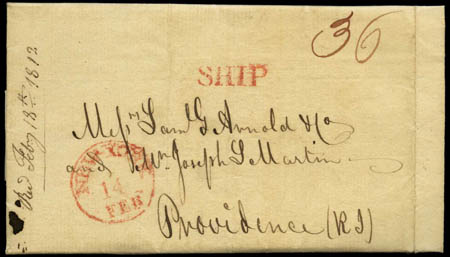 36
SHIP
Messrs Saml G. Arnold & Co
and Mr. Joseph S. Martin
Providence (R I)
NEW-YORK
14
FEB
Recd Feby 18th 1812